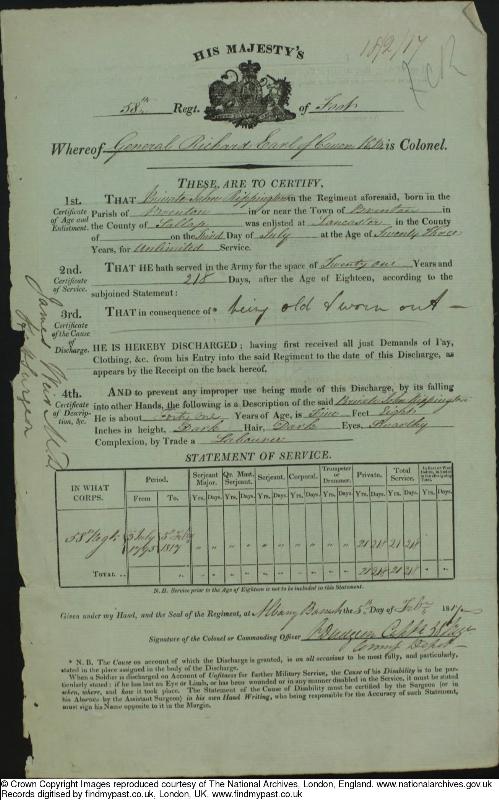 18/2/17
HIS MAJESTY'S
58th Regt. of Foot
Whereof General Richard Earl of Cavan K.C. is Colonel.
THESE, ARE TO CERTIFY,
1st.
Certificate
of Age and
Enlistment.
THAT Private John Rippington in the Regiment aforesaid, born in the
Parish of in or near the Town of in
the County of Sallop was enlisted at Lancaster in the County
of on the Third Day of July at the Age of Twenty Three
Years, for Unlimited Service.
2nd.
Certificate
of Service.
THAT HE hath served in the Army for the space of Twenty one Years and
218 Days, after the Age of Eighteen, according to the
subjoined Statement:
3rd.
Certificate
of the Cause
of
Discharge.
THAT in consequence of * being old & worn out —
HE IS HEREBY DISCHARGED; having first received all just Demands of Pay,
Clothing, &c. from his Entry into the said Regiment to the date of this Discharge, as
appears by the Receipt on the back hereof.
James
4th.
Certificate
of Descrip-
tion, &c.
AND to prevent any improper use being made of this Discharge, by its falling
into other Hands, the following is a Description of the said Private John Rippington
He is about Forty one Years of Age, is Five Feet Eight
Inches in height, Dark Hair, Dark Eyes, Swarthy
Complexion, by Trade a Labourer
STATEMENT OF SERVICE.
IN WHAT
CORPS.
Period.
From To.
Serjeant
Major.
Qr. Mast.
Serjeant.
Serjeant.
Corporal.
Trumpeter
or
Drummer.
Private.
Total
Service.
Yrs. Days. Yrs. Days. Yrs. Days. Yrs. Days. Yrs. Days. Yrs. Days. Yrs. Days. Yrs. Days.
58th Regt. 3 July 1795 5th Feby 1817 " " " " " " " " " " 21 218 21 218
TOTAL .. " " " " " " " " " " 21 218 21 218
N.B. Service prior to the Age of Eighteen is not to be included in this Statement.
Given under my Hand, and the Seal of the Regiment, at Albany Barracks the 5th Day of Feby 1817
Signature of the Colonel or Commanding Officer
Depot
* N. B. The Cause on account of which the Discharge is granted, is on all occasions to be most fully, and particularly,
stated in the place assigned in the body of the Discharge.
When a Soldier is discharged on Account of Unfitness for further Military Service, the Cause of his Disability is to be par-
ticularly stated: if he has lost an Eye or Limb, or has been wounded or in any manner disabled in the Service, it must be stated
when, where, and how it took place. The Statement of the Cause of Disability must be certified by the Surgeon (or in
his Absence by the Assistant Surgeon) in his own Hand Writing, who being responsible for the Accuracy of such Statement,
must sign his Name opposite to it in the Margin.
© Crown Copyright Images reproduced courtesy of The National Archives, London, England. www.nationalarchives.gov.uk
Records digitised by findmypast.co.uk, London, UK. www.findmypast.co.uk